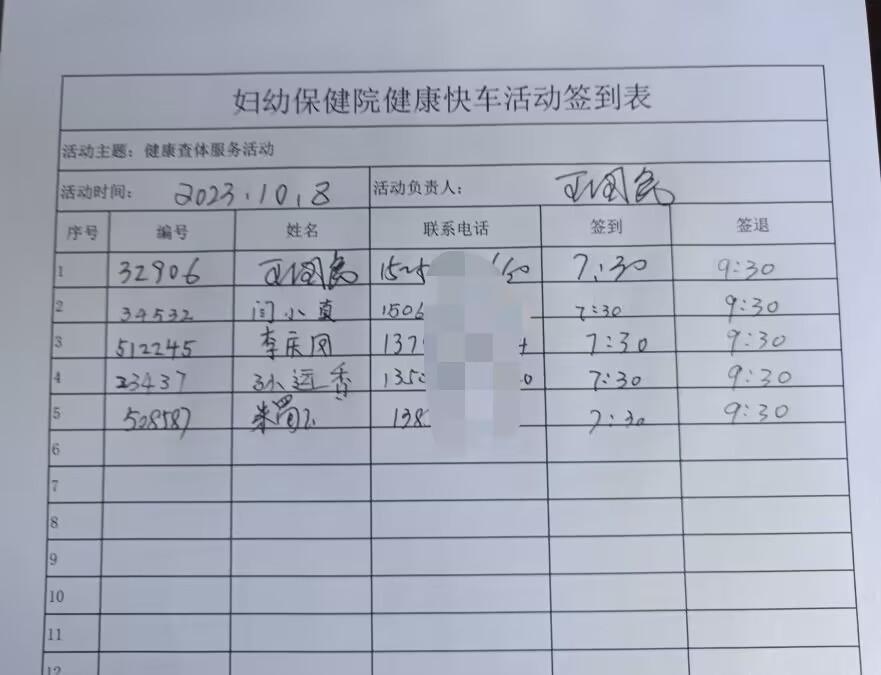 妇幼保健院健康快车活动签到表
活动主题: 健康查体服务活动
活动时间: 2023.10.8 活动负责人: 王国民
序号 编号 姓名 联系电话 签到 签退
1 32906 王国民 7:30 9:30
2 34532 闫小真 1506 7:30 9:30
3 512245 李庆凤 137 7:30 9:30
4 23437 孙远香 135 7:30 9:30
5 508587 138 7:30 9:30
6
7
8
9
10
11
12